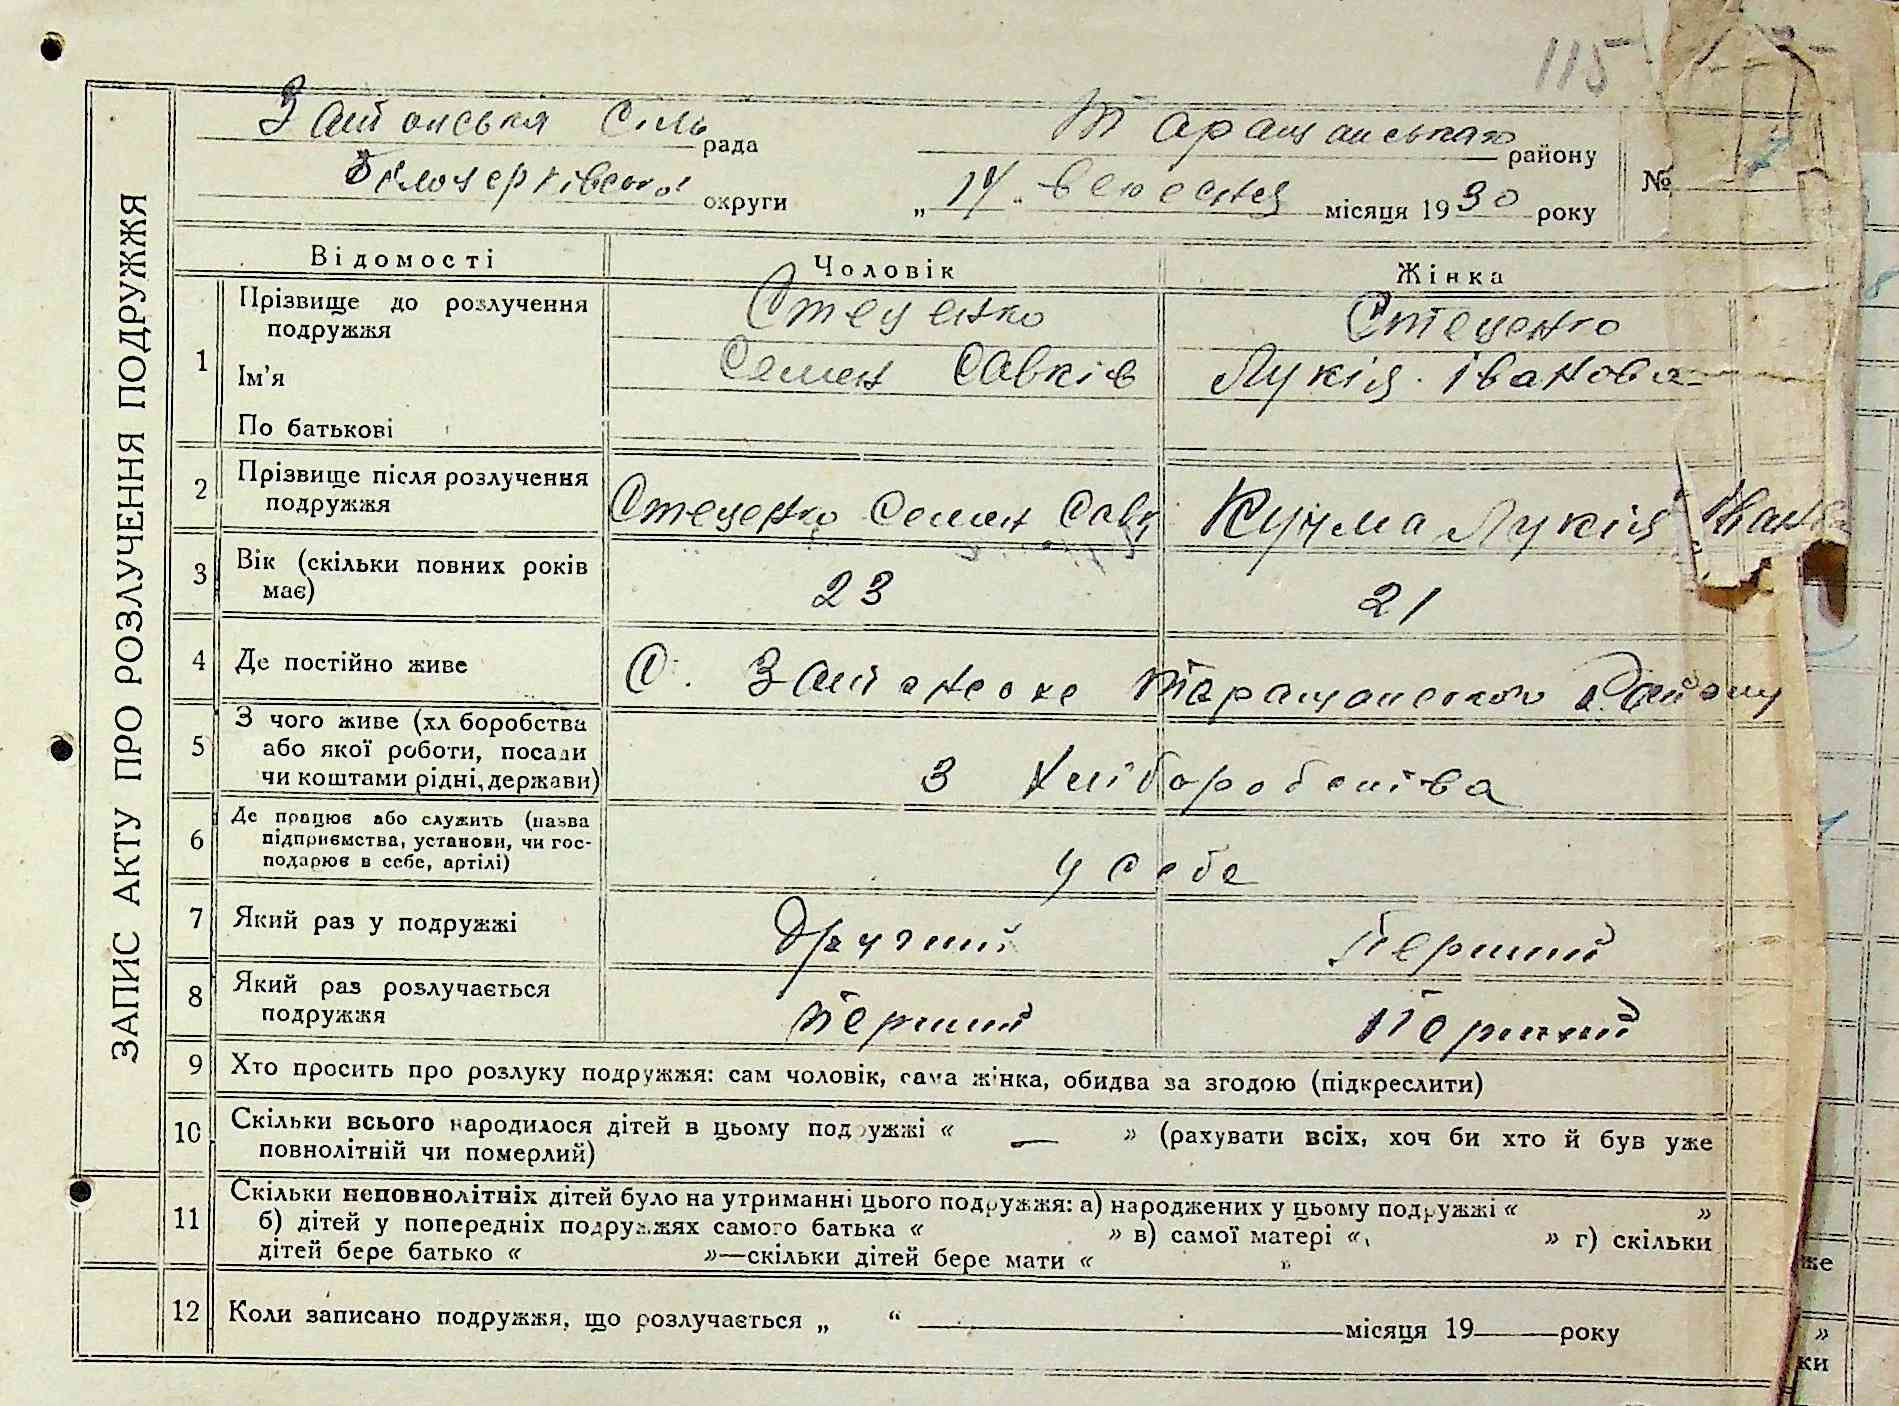 115
Сіль рада Таращанського району №
Білоцерківської округи „14“ вересня місяця 1930 року
ЗАПИС АКТУ ПРО РОЗЛУЧЕННЯ ПОДРУЖЖЯ
Відомості Чоловік Жінка
1 Прізвище до розлучення подружжя Стеценко Стеценко
Ім'я Семен Савків Лукія Іванова
По батькові
2 Прізвище після розлучення подружжя Стеценко Семен Савк Кучма Лукія Іванов
3 Вік (скільки повних років має) 23 21
4 Де постійно живе С. Таращанського Району
5 З чого живе (хлιборобства або якої роботи, посади чи коштами рідні, держави) З хліборобства
6 Де працює або служить (назва підприємства, установи, чи господарює в себе, артілі) у себе
7 Який раз у подружжі Другий Перший
8 Який раз розлучається подружжя Перший Перший
9 Хто просить про розлуку подружжя: сам чоловік, сама жінка, обидва за згодою (підкреслити)
10 Скільки всього народилося дітей в цьому подружжі « — » (рахувати всіх, хоч би хто й був уже
повнолітній чи померлий)
11 Скільки неповнолітніх дітей було на утриманні цього подружжя: а) народжених у цьому подружжі « »
б) дітей у попередніх подружжях самого батька « » в) самої матері « » г) скільки
дітей бере батько « »—скільки дітей бере мати « »
12 Коли записано подружжя, що розлучається „ “ місяця 19 року
же
»
ки